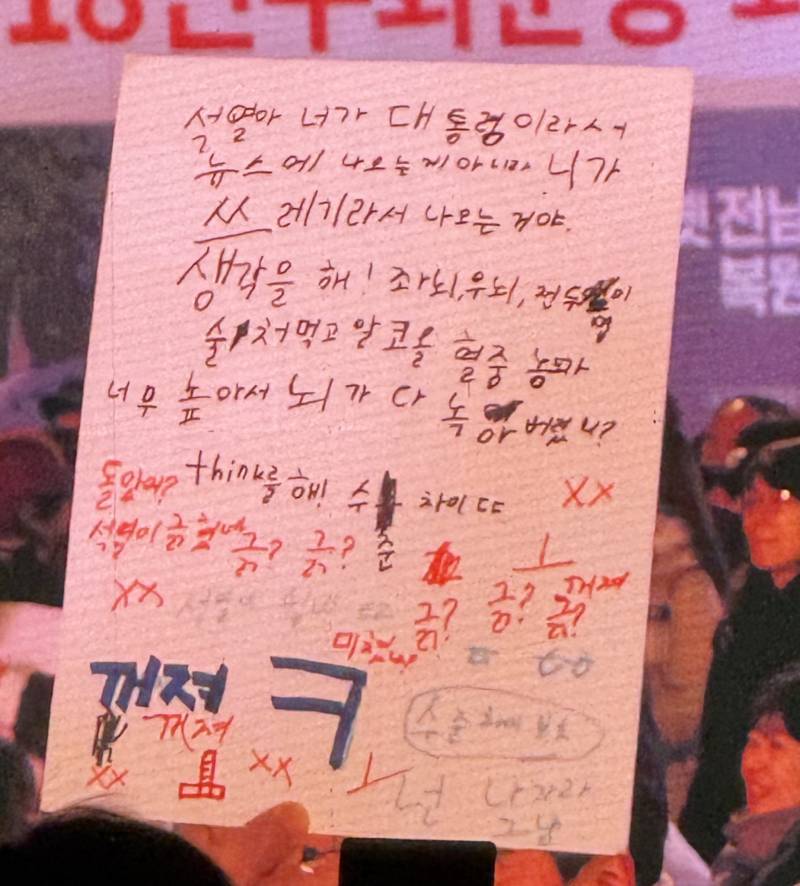 18민주화운동
석열아 너가 대통령이라서
뉴스에 나오는게 아니라 니가
쓰레기라서 나오는 거야.
생각을 해! 좌뇌, 우뇌, 전두엽이
술 처먹고 알코올 혈중 농도가
너무 높아서 뇌가 다 녹아버렸니?
think를 해! 수준 차이 ㄸ
돌았어?
석열이 긁혔네 긁? 긁?
XX
XX
ㅗ
긁? 긁? 긁? 꺼져
미쳤냐
꺼져 ㅋ
꺼져
XX ㅗ XX ㅗ
넌 나가라
그냥
전남
복원